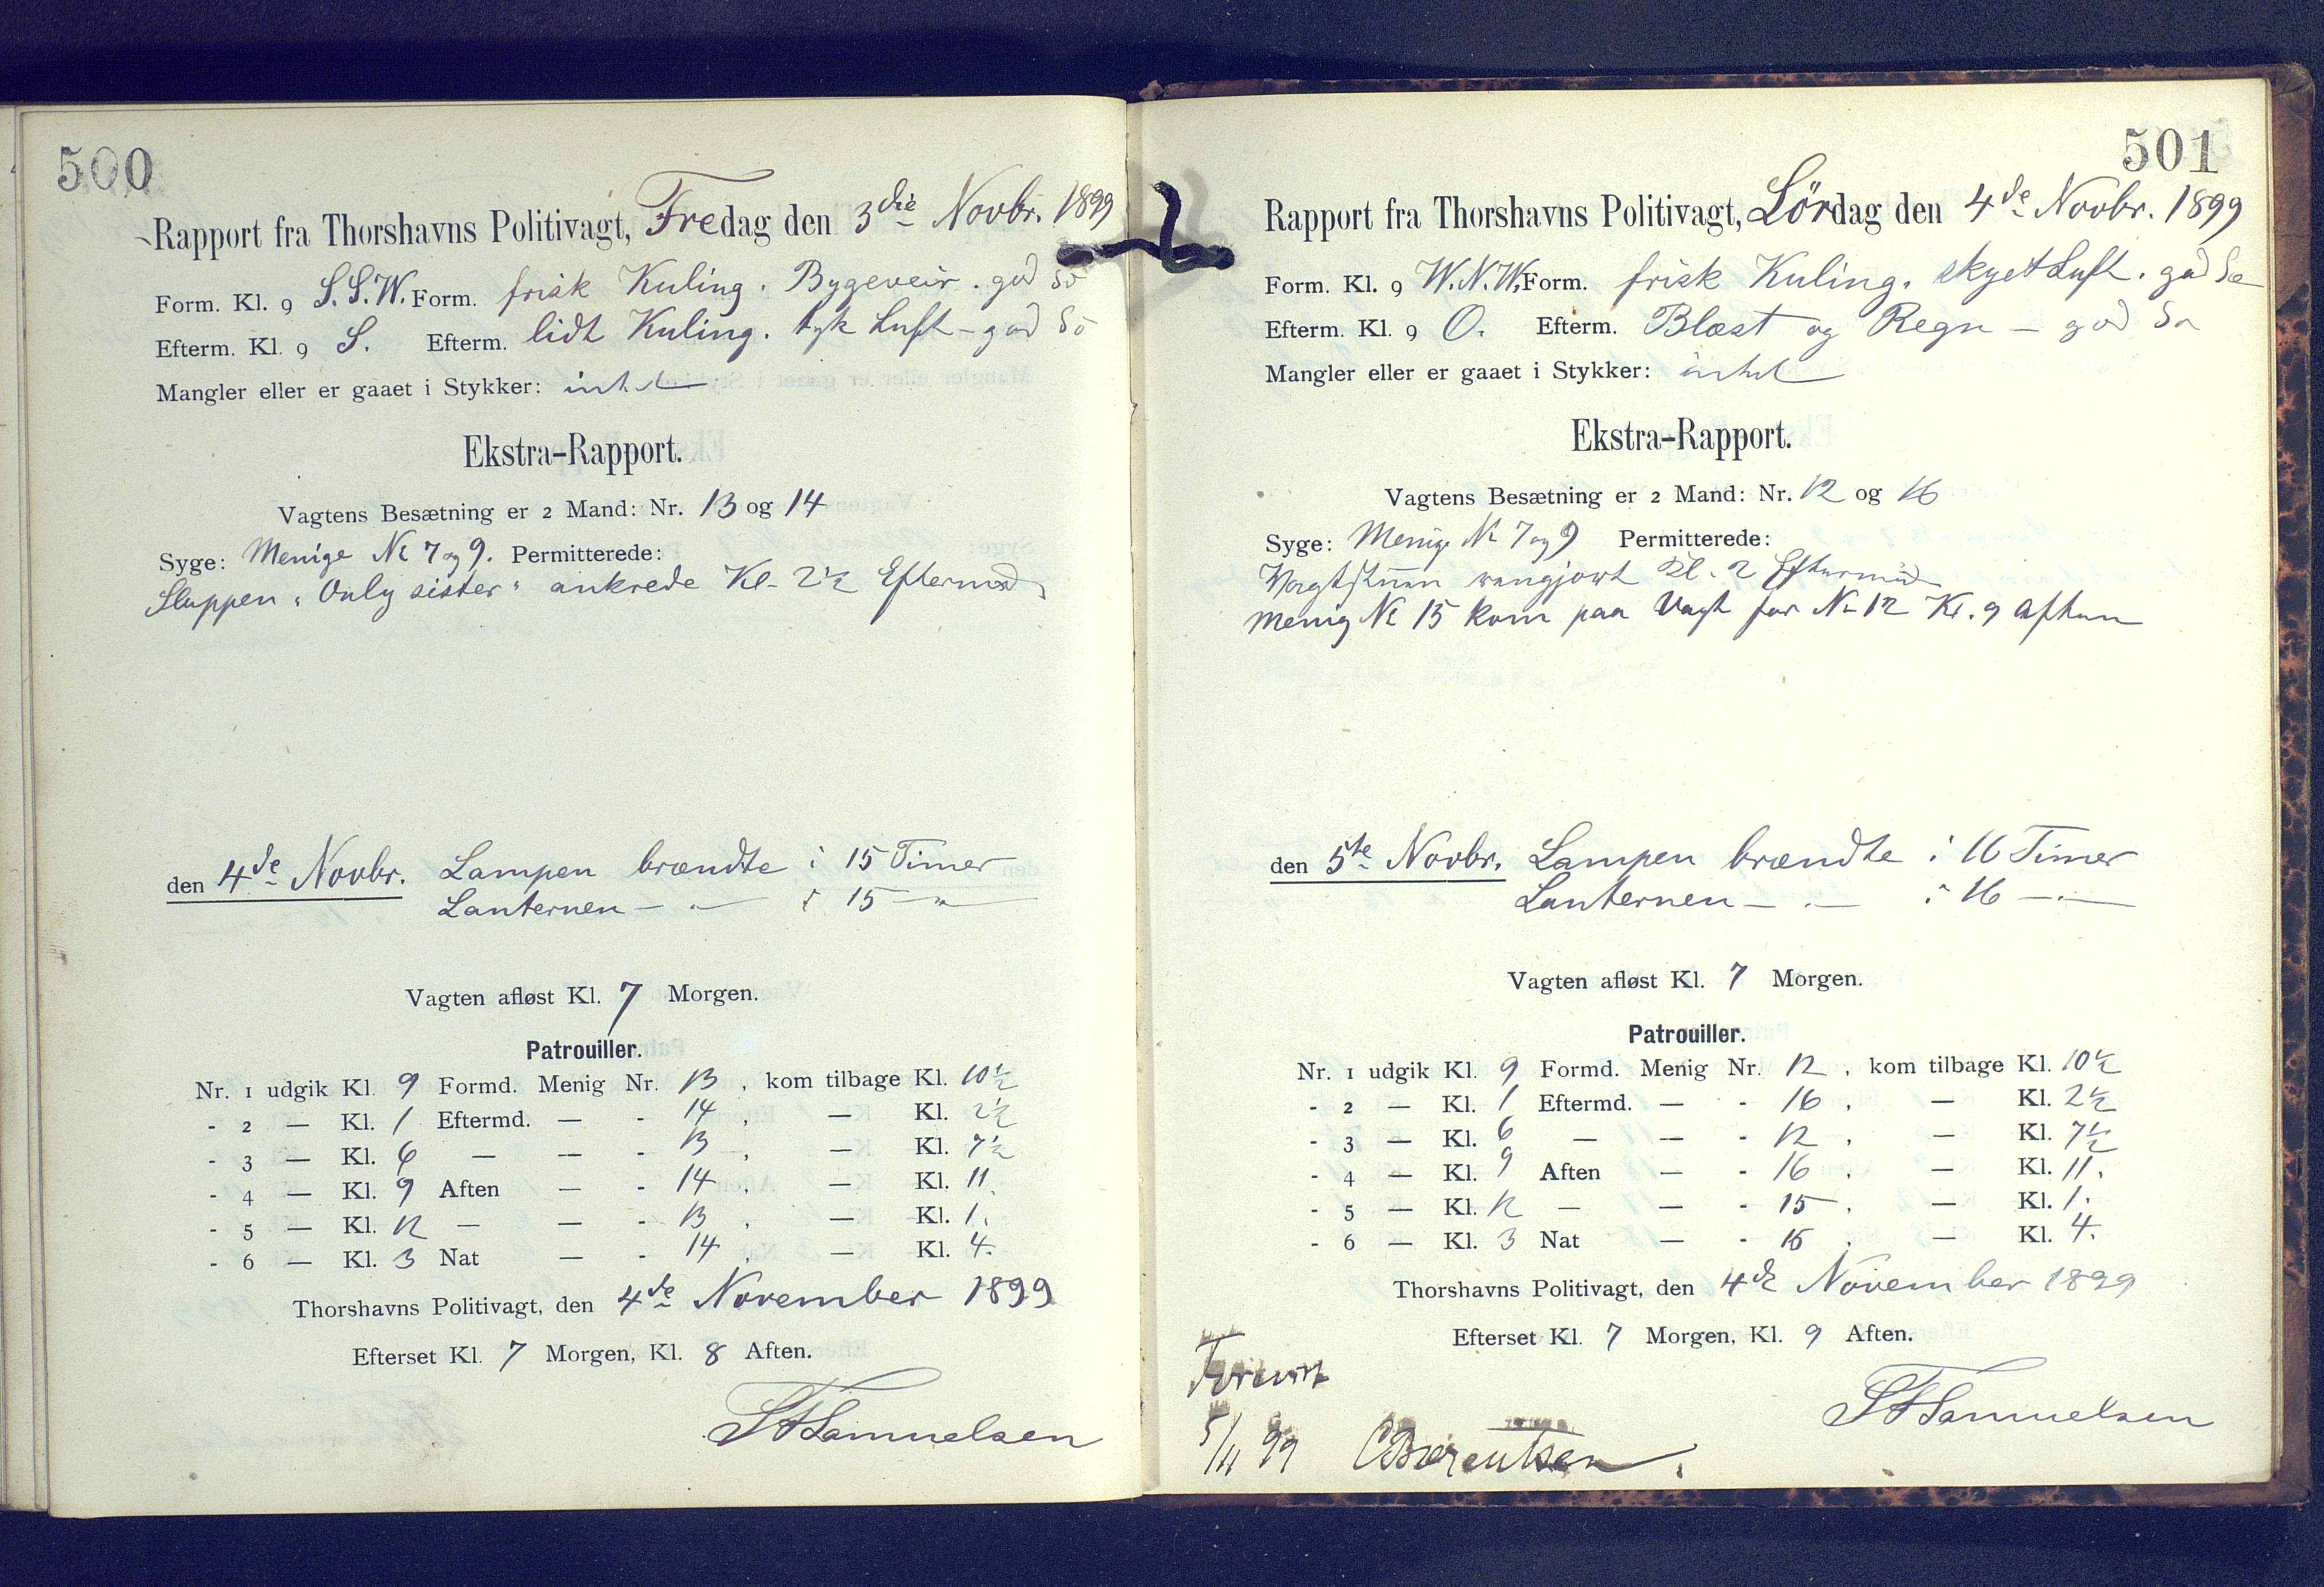 500
Rapport fra Thorshavns Politivagt, Fredag den 3die Novbr. 1899
Form. Kl. 9 S.S.W. Form. frisk Kuling. Bygeveir. god Sö
Efterm. Kl. 9 S. Efterm. lidt Kuling. tyk Luft - god Sö
Mangler eller er gaaet i Stykker: intet
Ekstra-Rapport.
Vagtens Besætning er 2 Mand: Nr. 13 og 14
Syge: Menige No 7 og 9. Permitterede:
Sluppen "Only sister" ankrede Kl. 2½ Eftermd.
den 4de Novbr. Lampen brændte i 15 Timer
Lanternen — " — i 15 — " —
Vagten afløst Kl. 7 Morgen.
Patrouiller.
Nr. 1 udgik Kl. 9 Formd. Menig Nr. 13, kom tilbage Kl. 10½
- 2 — Kl. 1 Eftermd. — - 14, — Kl. 2½
- 3 — Kl. 6 — — - 13, — Kl. 7½
- 4 — Kl. 9 Aften — - 14, — Kl. 11.
- 5 — Kl. 12 — — - 13, — Kl. 1.
- 6 — Kl. 3 Nat — - 14, — Kl. 4.
Thorshavns Politivagt, den 4de November 1899
Efterset Kl. 7 Morgen, Kl. 8 Aften.
Samuelsen
501
Rapport fra Thorshavns Politivagt, Lördag den 4de Novbr. 1899
Form. Kl. 9 W.N.W. Form. frisk Kuling. skyet Luft. god Sø
Efterm. Kl. 9 O. Efterm. Blæst og Regn — god Sø
Mangler eller er gaaet i Stykker: intet
Ekstra-Rapport.
Vagtens Besætning er 2 Mand: Nr. 12 og 16
Syge: Menige No 7 og 9 Permitterede:
Vagtstuen rengjort Kl. 2 Eftermid
Menig No 15 kom paa Vagt for No 12 Kl. 9 Aften
den 5te Novbr. Lampen brændte i 16 Timer
Lanternen — " — i 16 — " —
Vagten afløst Kl. 7 Morgen.
Patrouiller.
Nr. 1 udgik Kl. 9 Formd. Menig Nr. 12, kom tilbage Kl. 10½
- 2 — Kl. 1 Eftermd. — - 16, — Kl. 2½
- 3 — Kl. 6 — — - 12, — Kl. 7½
- 4 — Kl. 9 Aften — - 16, — Kl. 11.
- 5 — Kl. 12 — — - 15, — Kl. 1.
- 6 — Kl. 3 Nat — - 16, — Kl. 4.
Thorshavns Politivagt, den 4de November 1899
Efterset Kl. 7 Morgen, Kl. 9 Aften.
Samuelsen
Forevist
5/11 99 CBærentsen.